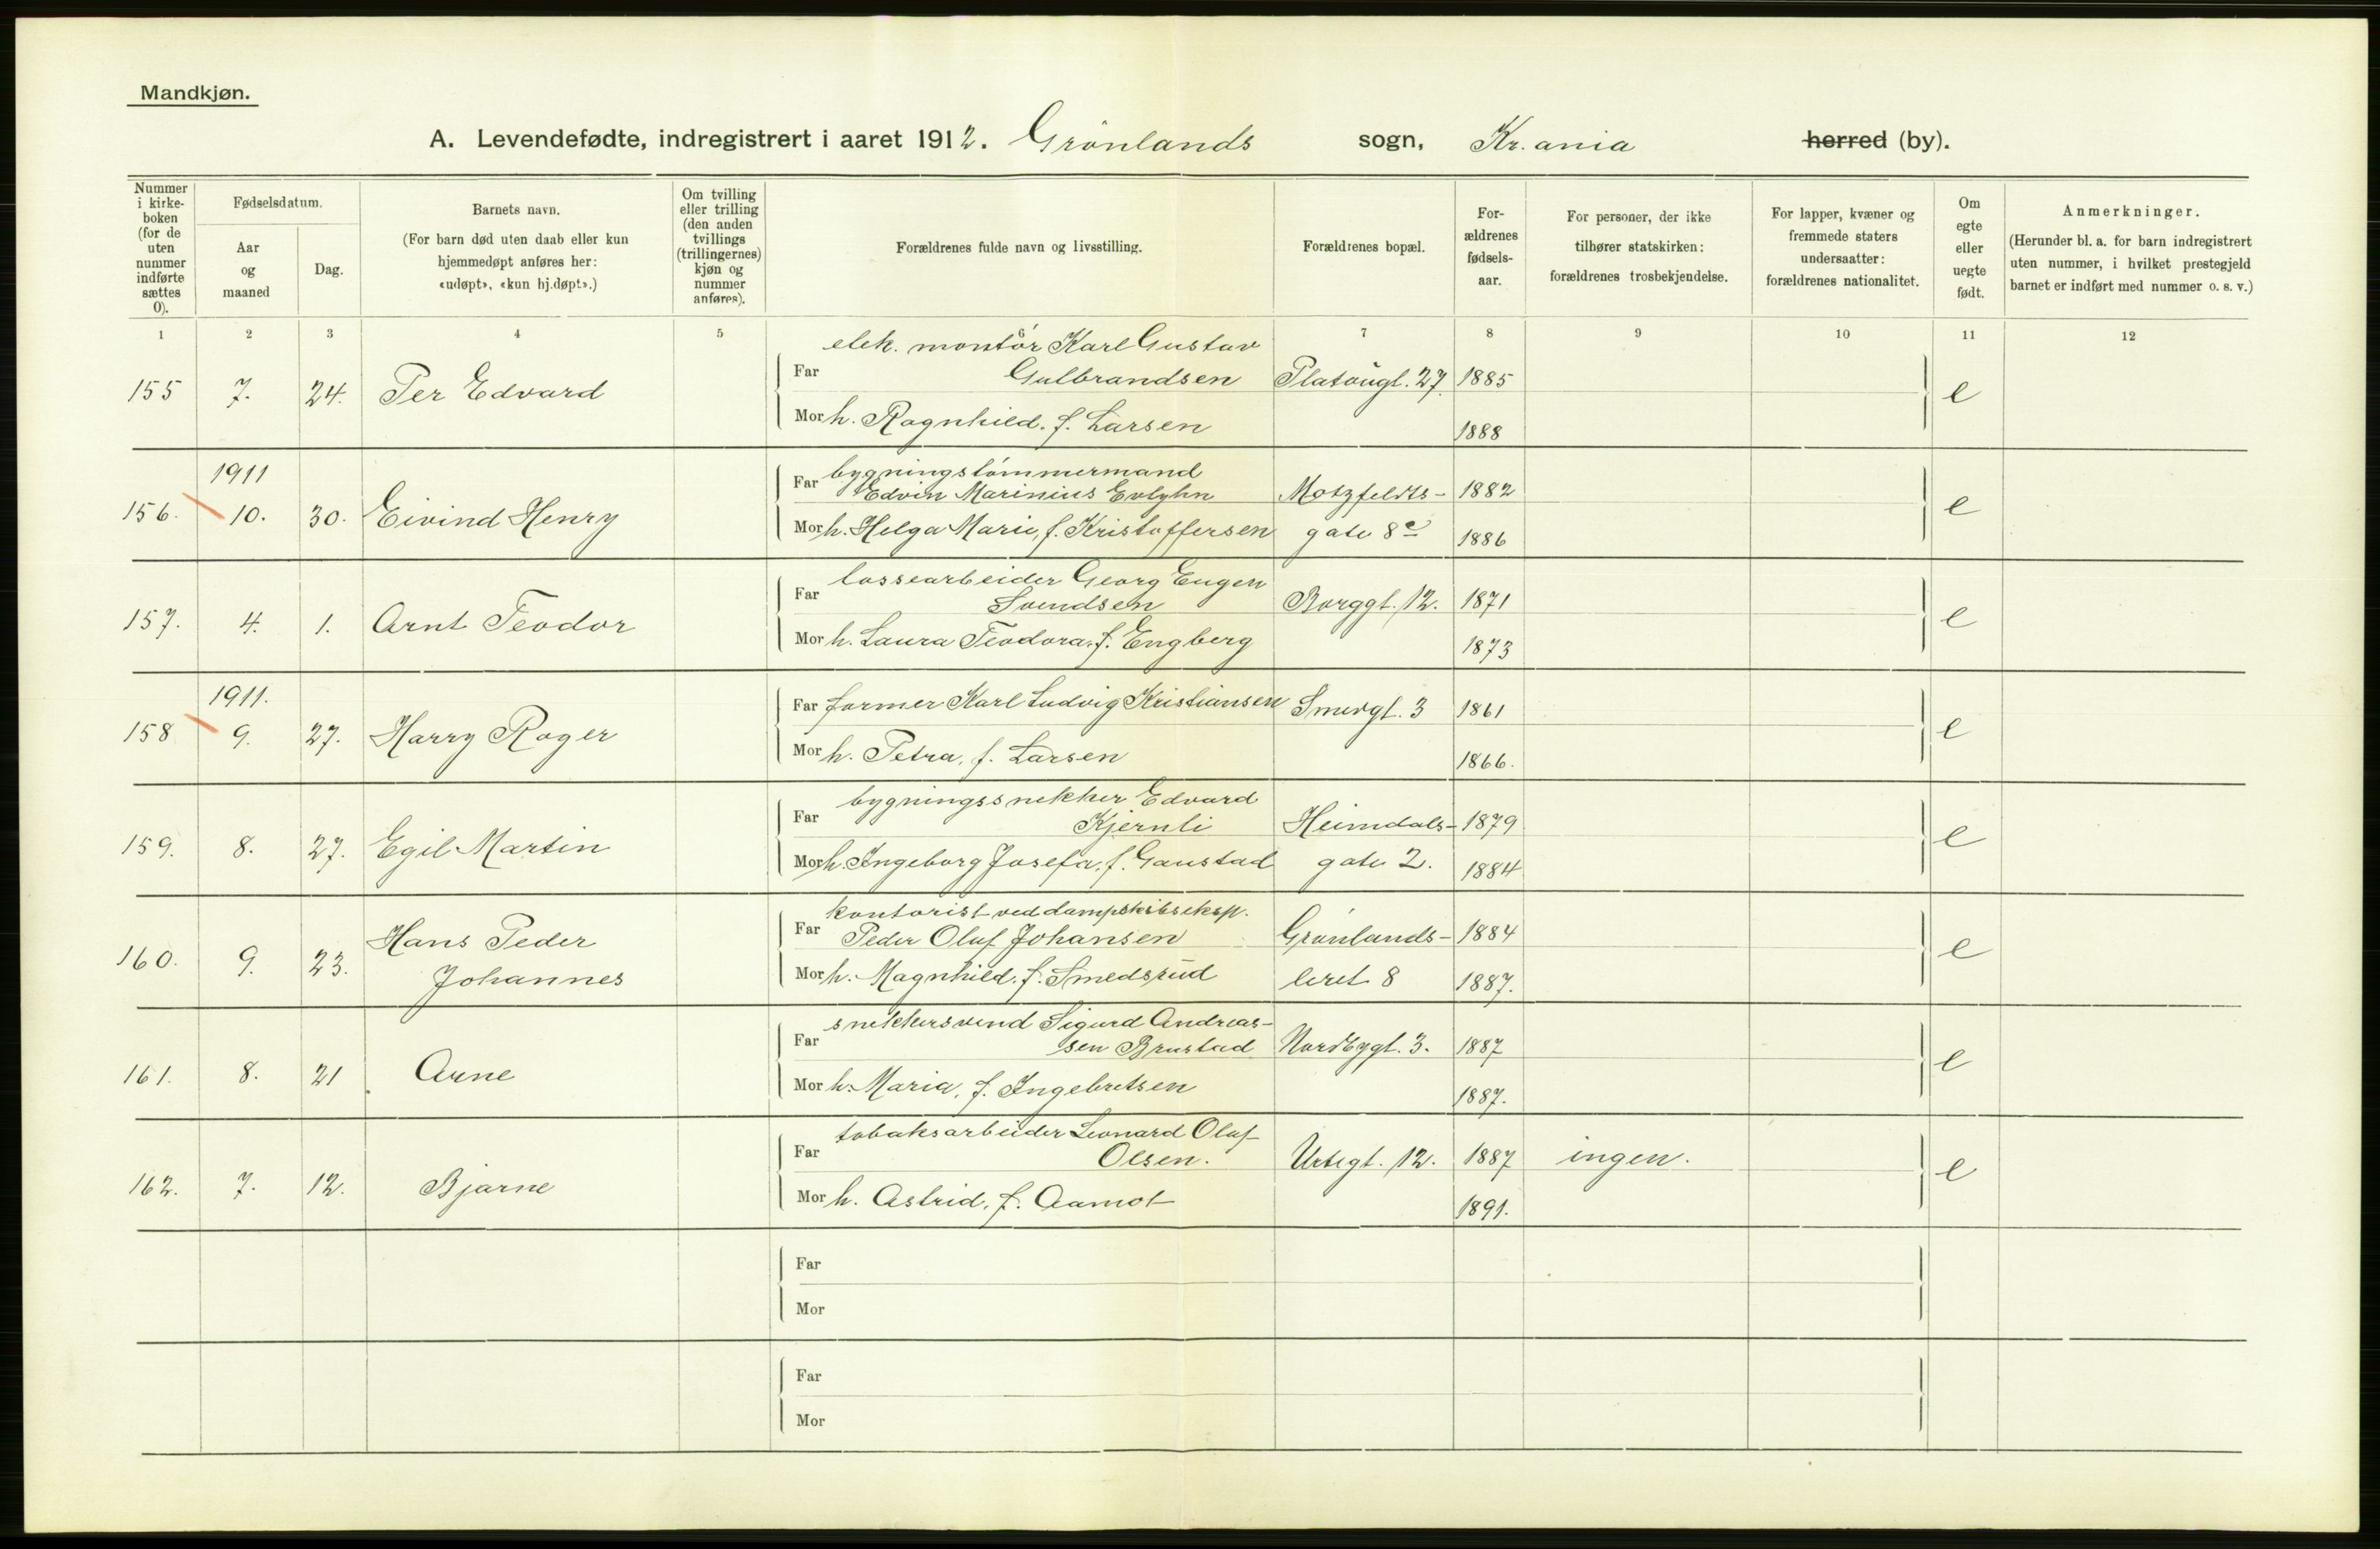 Mandkjøn.
A. Levendefødte, indregistrert i aaret 1912. Grönlands sogn, Kr.ania herred (by).
Nummer
i kirke-
boken
(for de
uten
nummer
indførte
sættes
0).
Fødselsdatum.
Aar
og
maaned
Dag.
Barnets navn.
(For barn død uten daab eller kun
hjemmedøpt anføres her:
«udøpt», «kun hj.døpt».)
Om tvilling
eller trilling
(den anden
tvillings
(trillingernes)
kjøn og
nummer
anføres).
Forældrenes fulde navn og livsstilling.
Forældrenes bopæl.
For-
ældrenes
fødsels-
aar.
For personer, der ikke
tilhører statskirken:
forældrenes trosbekjendelse.
For lapper, kvæner og
fremmede staters
undersaatter:
forældrenes nationalitet.
Om
egte
eller
uegte
født.
Anmerkninger.
(Herunder bl. a. for barn indregistrert
uten nummer, i hvilket prestegjeld
barnet er indført med nummer o. s. v.)
1 2 3 4 5 6 7 8 9 10 11 12
elek. montör Karl Gustav
155 7. 24. Per Edvard Far Gulbrandsen Platougt. 27. 1885 e
Mor h. Ragnhild. f. Larsen 1888
1911 bygningstömmermand
156. 10. 30. Eivind Henry Far Edvin Marinius Motzfeldts- 1882 e
Mor h. Helga Marie, f. Kristoffersen gate 8c 1886
lossearbeider Georg Eugen
157. 4. 1. Arnt Teodor Far Svendsen Borggt. 12. 1871 e
Mor h. Laura Teodora, f. Engberg 1873
1911.
158 9. 27. Harry Roger Far former Karl Ludvig Kristiansen Smedgt. 3 1861 e
Mor h. Petra, f. Larsen 1866.
bygningssnekker Edvard
159. 8. 27. Egil Martin Far Kjernli Heimdals- 1879 e
Mor h. Ingeborg Josefa, f. Gaustad gate 2. 1884
kontorist ved dampskibseksp.
160. 9. 23. Hans Peder Far Peder Oluf Johansen Grönlands- 1884 e
Johannes Mor h. Magnhild. f. Smedsrud leret 8 1887.
snekkersvend Sigurd Andreas-
161. 8. 21 Arne Far sen Brustad Nordbygt. 3. 1887 e
Mor h. Maria, f. Ingebretsen 1887.
tobaksarbeider Leonard Oluf
162. 7. 12. Bjarne Far Olsen. Urtegt. 12. 1887 ingen. e
Mor h. Astrid, f. Aamot 1891.
Far
Mor
Far
Mor